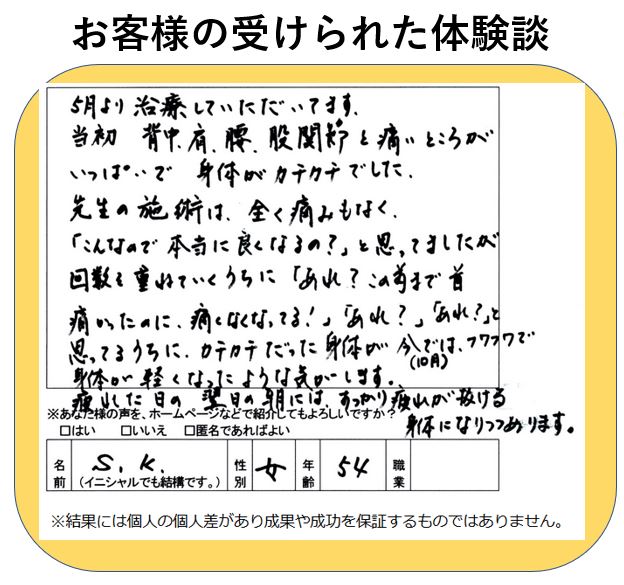 お客様の受けられた体験談
5月より治療していただいてます。
当初 背中、肩、腰、股関節と痛いところが
いっぱいで 身体がカチカチでした。
先生の施術は、全く痛みもなく、
「こんなので本当に良くなるの?」と思ってましたが
回数を重ねていくうちに「あれ?この前まで首
痛かったのに、痛くなくなってる!」「あれ?」「あれ?」と
思ってるうちに、カチカチだった身体が 今では、フワフワで
(10月)
身体が軽くなったような気がします。
疲れた日の翌日の朝には、すっかり疲れが抜ける
身体になりつつあります。
※あなた様の声を、ホームページなどで紹介してもよろしいですか?
□はい □いいえ □匿名であればよい
名前 S.K. 性別 女 年齢 54 職業
(イニシャルでも結構です。)
※結果には個人の個人差があり成果や成功を保証するものではありません。